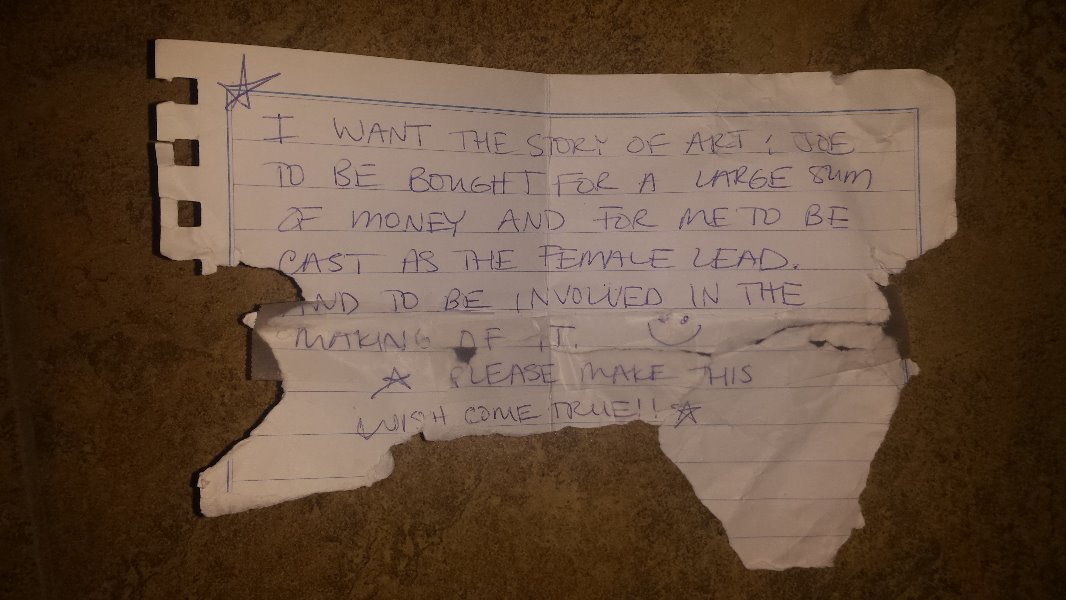 I WANT THE STORY OF ART & JOE
TO BE BOUGHT FOR A LARGE SUM
OF MONEY AND FOR ME TO BE
CAST AS THE FEMALE LEAD.
AND TO BE INVOLVED IN THE
MAKING OF IT.
PLEASE MAKE THIS
WISH COME TRUE!!